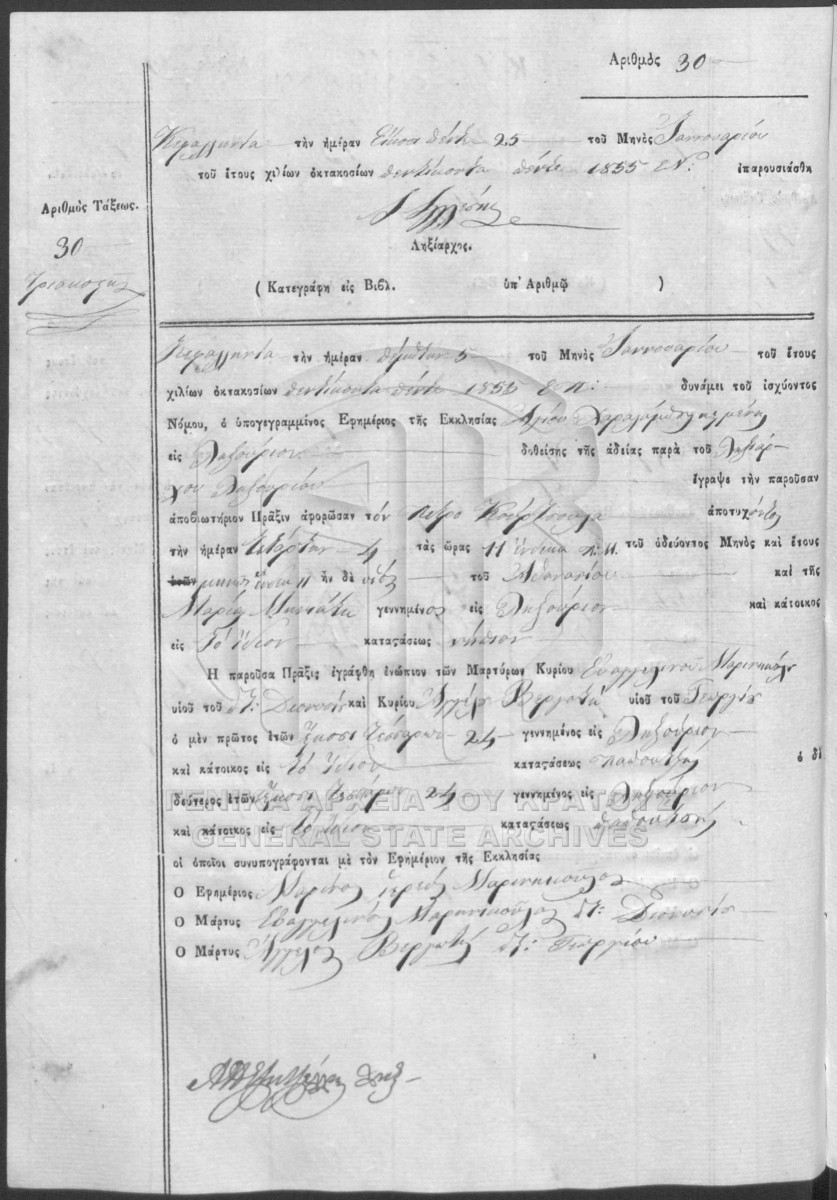 Ἀριθμὸς 30
Κεφαλληνία τὴν ἡμέραν Εἴκοσι πέντε 25 τοῦ Μηνὸς Ἰαννουαρίου
τοῦ ἔτους χιλίων ὀκτακοσίων πεντήκοντα πέντε 1855 Ε.Ν. ἐπαρουσιάσθη
Ἀριθμὸς Τάξεως.
30
Ληξίαρχος.
( Κατεγράφη εἰς Βιβλ. ὑπ' Ἀριθμῷ )
Κεφαλληνία τὴν ἡμέραν πέμπτην 5 τοῦ Μηνὸς Ἰαννουαρίου τοῦ ἔτους
χιλίων ὀκτακοσίων πεντήκοντα πέντε 1855 Ε.Π: δυνάμει τοῦ ἰσχύοντος
Νόμου, ὁ ὑπογεγραμμένος Ἐφημέριος τῆς Ἐκκλησίας Ἁγίου Χαραλάμπους
εἰς Ληξούριον δοθείσης τῆς ἀδείας παρὰ τοῦ Ληξιάρ-
χου Ληξουρίου ἔγραψε τὴν παροῦσαν
ἀποβιωτήριον Πρᾶξιν ἀφορῶσαν τόν Πέτρο Κουρτσουλα ἀποτυχόντος
τὴν ἡμέραν τετάρτην 4 τὰς ὥρας 11 ἕνδεκα π.Μ. τοῦ ὁδεύοντος Μηνὸς καὶ ἔτους
ἐτῶν ἦν δὲ υἱός τοῦ Ἀθανασίου καὶ τῆς
Μαρίας γεννημένος εἰς Ληξούριον καὶ κάτοικος
εἰς Τὸ ἴδιον καταςάσεως νήπιον
Ἡ παροῦσα Πρᾶξις ἐγράφθη ἐνώπιον τῶν Μαρτύρων Κυρίου Εὐαγγελινοῦ Μαρινόπουλου
υἱοῦ τοῦ Διονυσίου καὶ Κυρίου Ἀγγέλου Βεργωτῆ υἱοῦ τοῦ Γεωργίου
ὁ μὲν πρῶτος ἐτῶν Εἴκοσι τεσσάρων 24 γεννημένος εἰς Ληξούριον
καὶ κάτοικος εἰς Τὸ ἴδιον καταςάσεως παπουτζής ὁ δὲ
δεύτερος ἐτῶν Εἴκοσι τεσσάρων 24 γεννημένος εἰς Ληξούριον
καὶ κάτοικος εἰς Τὸ ἴδιον καταςάσεως παπουτσής
οἱ ὁποῖοι συνυπογράφονται μὲ τὸν Ἐφημέριον τῆς Ἐκκλησίας
Ὁ Ἐφημέριος Μαρῖνος ἱερεύς Μαρινόπουλος
Ὁ Μάρτυς Εὐαγγελινός Μαρινόπουλος Διονυσίου
Ὁ Μάρτυς Ἄγγελος Βεργωτής Γεωργίου
ΓΕΝΙΚΑ ΑΡΧΕΙΑ ΤΟΥ ΚΡΑΤΟΥΣ
GENERAL STATE ARCHIVES